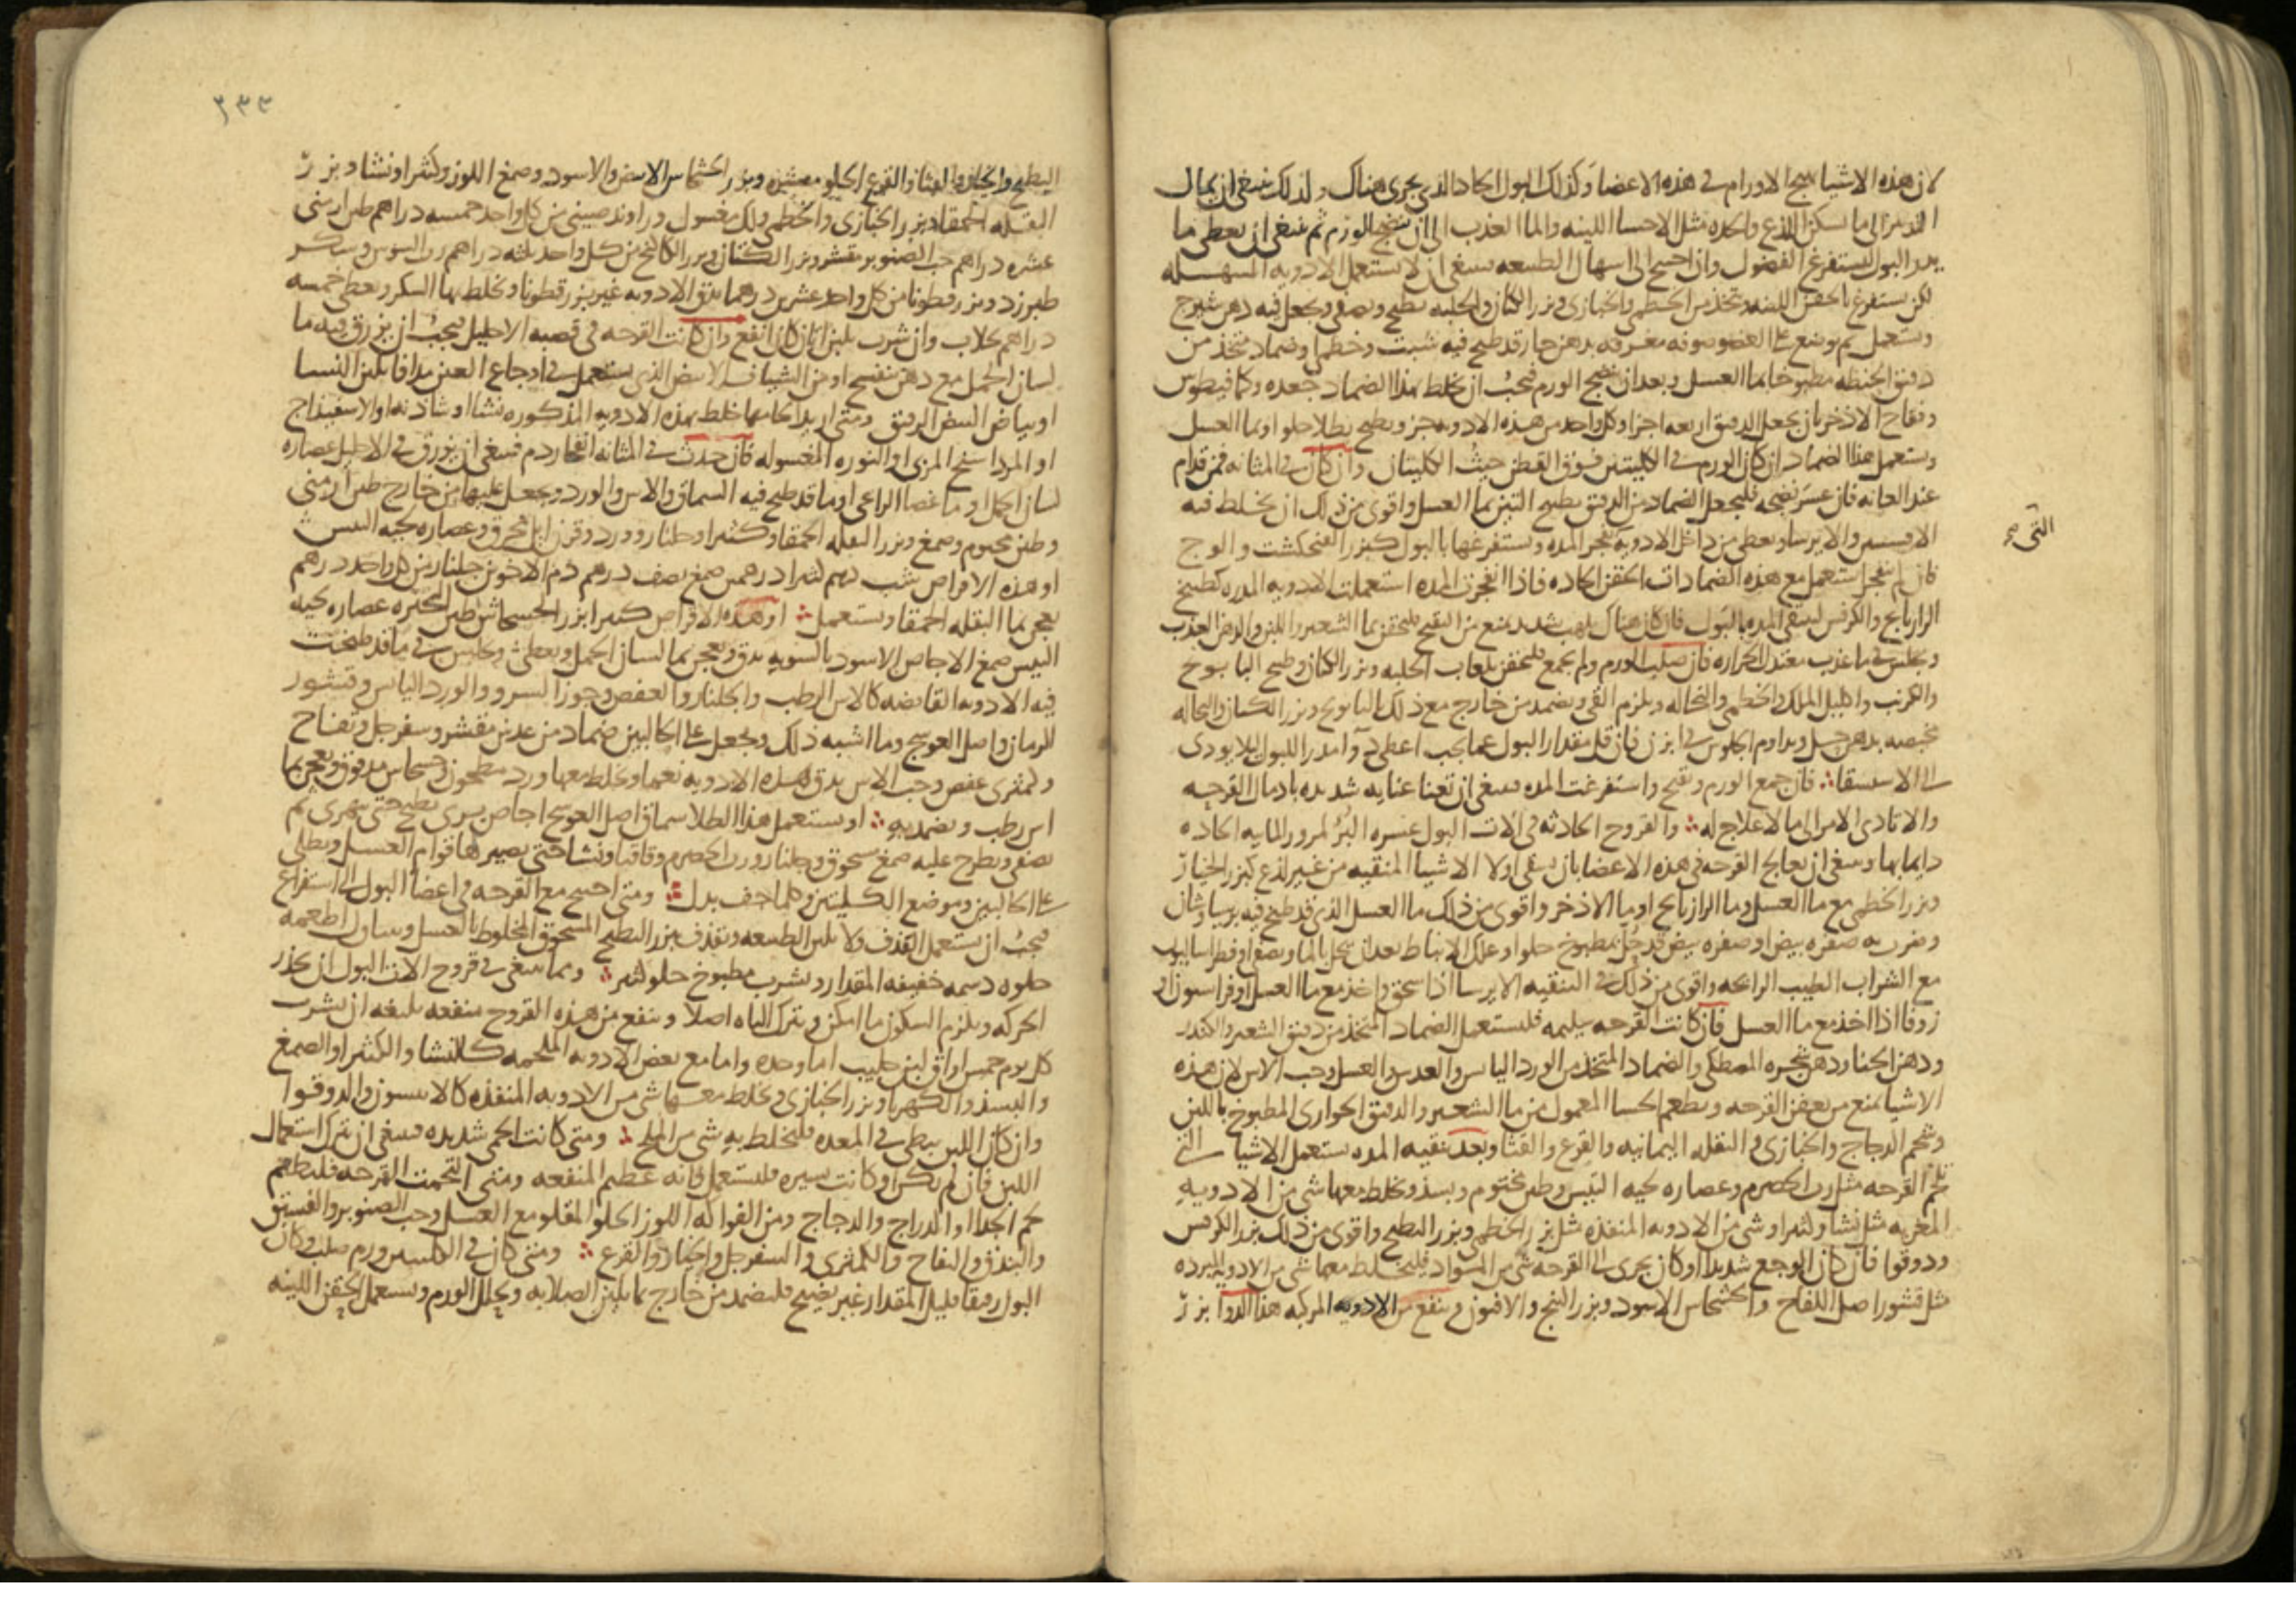 لان هذه الاشيا تهيج الاورام في هذه الاعضا وكذلك البول الحاد الذي يجري هناك ولذلك ينبغي ان يحال
التدبير الى ما يسكن اللذع والحده مثل الاحسا اللينه والما العذب الى ان ينضج الورم ثم ينبغي ان يعطى ما
يدر البول ليستفرغ الفضول وان احتيج الى اسهال الطبيعه فينبغي ان لا يستعمل الادويه المسهله
لكن يستفرغ بالحقن اللينه وتتخذ من الخطمي والخبازى وبزر الكتان والحلبه يطبخ ويصفى ويجعل فيه دهن شيرج
ويستعمل ثم يوضع على العضو صوفه مغرقه بدهن حار قد طبخ فيه شبت وخطمى وضماد متخذ من
دقيق الحنطه مطبوخا بما العسل وبعد ان ينضج الورم فيجب ان يخلط بهذا الضماد جعده وكمافيطوس
وفقاح الاذخر بان يجعل الدقيق اربعه اجزا وكل واحد من هذه الادويه جز ويطبخ بطلا حلو او بما العسل
ويستعمل هذا الضماد ان كان الورم في الكليتين فوق القطن حيث الكليتان وان كان في المثانه فمن قدام
عند العانه فان عسر نضجه فليجعل الضماد من الدقيق بطبيخ التين بما العسل واقوى من ذلك ان يخلط فيه
التي صح
والايرسا ويعطى من داخل الادويه المده وتستفرغها بالبول كبزر الفنجنكشت والوج
فان لم ينفجر استعمل مع هذه الضمادات الحقن الحاده فاذا انفجرت المده استعملت الادويه المدره كطبيخ
الرازيانج والكرفس لينقى المده بالبول فان كان هناك تلهب شديد يمنع من التقيح فليحقن بما الشعير واللبن والدهن العذب
ويجلس في ما عذب معتدل الحراره فان صلب الورم ولم يجمع فليحقن بلعاب الحلبه وبزر الكتان وطبيخ البابونج
والكرنب واكليل الملك والخطمي والنخاله ويلزم القي ويضمد من خارج مع ذلك بالبابونج وبزر الكتان والنخاله
بدهن خل ويداوم الجلوس في ابزن فان قل مقدار البول عما يجب اعطي دوا مدرا للبول ليلا يودي
الى الاستسقا فان جمع الورم وتقيح واستفرغت المده فينبغي ان تعنا عنايه شديده بادمال القرحه
والا تادى الامر الى ما لا علاج له والقروح الحادثه في الات البول عسره البرُ لمرور المايه الحاده
دايما بها وينبغي ان يعالج القرحه في هذه الاعضا بان يسقى اولا الاشيا المنقيه من غير لذع كبزر الخيار
وبزر الخطمي مع ما العسل وما الرازيانج او ما الاذخر واقوى من ذلك ما العسل الذي قد طبخ فيه
صفره بيض قد حُل بمطبوخ حلو او علك الانباط بعد ان يحل بالما
مع الشراب الطيب الرائحه واقوى من ذلك في التنقيه الايرسا اذا سحق واخذ مع ما العسل او فراسيون او
زوفا اذا اخذ مع ما العسل فان كانت القرحه سليمه فليستعمل الضماد المتخذ من دقيق الشعير والكندر
ودهن الحنا ودهن شجره المصطكى والضماد المتخذ من الورد اليابس والعدس والعسل وحب الاس لان هذه
الاشيا تمنع من تعفن القرحه ويطعم الحسا المعمول من ما الشعير والدقيق الحوارى المطبوخ باللبن
وشحم الدجاج والخبازى والبقله اليمانيه والقرع والقثا وبعد تنقيه المده يستعمل الاشيا التي
تلحم القرحه مثل رب الحصرم وعصاره لحيه التيس وطين مختوم وبسذ ويخلط معها شي من الادويه
المغريه مثل نشا وكثيرا وشي من الادويه المنفذه مثل بزر الخطمي وبزر البطيخ واقوى من ذلك بزر الكرفس
ودوقوا فان كان الوجع شديدا او كان يجري الى القرحه شي من المواد فليخلط معها شي من الادويه المبرده
مثل قشور اصل اللفاح والخشخاش الاسود وبزر البنج والافيون وينفع من الادويه المركبه هذا الدوا بزر
٢٣٣
البطيخ والخيار والقثا والقرع الحلو مقشره وبزر الخشخاش الابيض والاسود وصمغ اللوز وكثيرا ونشا وبزر
البقله الحمقا وبزر الخبازى والخطمي ولك مغسول وراوند صيني من كل واحد خمسه دراهم طين ارمني
عشره دراهم حب الصنوبر مقشر وبزر الكتان وبزر الكاكنج من كل واحد ثلثه دراهم رب السوس وسكر
طبرزد وبزر قطونا من كل واحد عشرين درهما تدق الادويه غير بزر قطونا وتخلط بها السكر ويعطى خمسه
دراهم بجلاب وان شرب بلبن اتان كان انفع وان كانت القرحه في قصبه الاحليل فيجب ان يزرق فيه ما
لسان الحمل مع دهن بنفسج او من الشياف الابيض الذي يستعمل في اوجاع العين مدافا بلبن النسا
او بياض البيض الرقيق ومتى اريد الحامها خلط بهذه الادويه المذكوره نشا او شاذنه او الاسفيداج
او المرداسنج المربى او النوره المغسوله فان حدث في المثانه انفجار دم فينبغي ان يزرق في الاحليل عصاره
لسان الحمل او ما عصا الراعي او ما قد طبخ فيه السماق والاس والورد ويجعل عليها من خارج طين ارمني
وطين مختوم وصمغ وبزر البقله الحمقا وكثيرا وجلنار وورد وقرن ايل محرق وعصاره لحيه التيس
او هذه الاقراص شب درهم كثيرا درهمين صمغ نصف درهم دم الاخوين جلنار من كل واحد درهم
يعجن بما البقله الحمقا ويستعمل او هذه الاقراص كثيرا بزر الخشخاش طين البحيره عصاره لحيه
التيس صمغ الاجاص الاسود بالسويه يدق ويعجن بما لسان الحمل ويعطى ويجلس في ما قد طبخت
فيه الادويه القابضه كالاس الرطب والجلنار والعفص وجوز السرو والورد اليابس وقشور
الرمان واصل العوسج وما اشبه ذلك ويجعل على الحالبين ضماد من عدس مقشر وسفرجل وتفاح
وكمثرى عفص وحب الاس يدق هذه الادويه نعما ويخلط معها ورد مطحون وخشخاش مدقوق ويعجن بما
اس رطب ويضمد به او يستعمل هذا الطلا سماق اصل العوسج اجاص بري يطبخ حتى يتهرى ثم
يصفى ويطرح عليه صمغ مسحوق وجلنار ورب الحصرم وقاقيا ونشا حتى يصير لها قوام العسل ويطلى
على الحالبين وموضع الكليتين وكلما جف بدل ومتى احتيج مع القرحه في اعضا البول الى استفراغ
فيجب ان يستعمل القذف ولا تلين الطبيعه ويقذف ببزر البطيخ المسحوق المخلوط بالعسل ويتناول اطعمه
حلوه دسمه خفيفه المقدار ويشرب مطبوخ حلو كثير ومما ينبغي في قروح الات البول ان يحذر
الحركه ويلزم السكون ما امكن ويترك الباه اصلا وينفع من هذه القروح منفعه بليغه ان يشرب
كل يوم خمس اواق لبن حليب اما وحده واما مع بعض الادويه الملحمه كالنشا والكثيرا والصمغ
والبسذ والكهربا وبزر الخبازى ويخلط معها شي من الادويه المنفذه كالانيسون والدوقوا
وان كان اللبن يبطي في المعده فليخلط به شي من الملح ومتى كانت الحمى شديده فينبغي ان يترك استعمال
اللبن فان لم تكن او كانت يسيره فليستعمل فانه عظيم المنفعه ومتى التحمت القرحه فليطعم
لحم الجدا والدراج والدجاج ومن الفواكه اللوز الحلو المقلو مع العسل وحب الصنوبر والفستق
والبندق والتفاح والكمثرى والسفرجل والخيار والقرع ومتى كان في الكليتين ورم صلب وكان
البول رقيقا قليل المقدار غير نضيج فليضمد من خارج بما يلين الصلابه ويحلل الورم ويستعمل الحقن اللينه